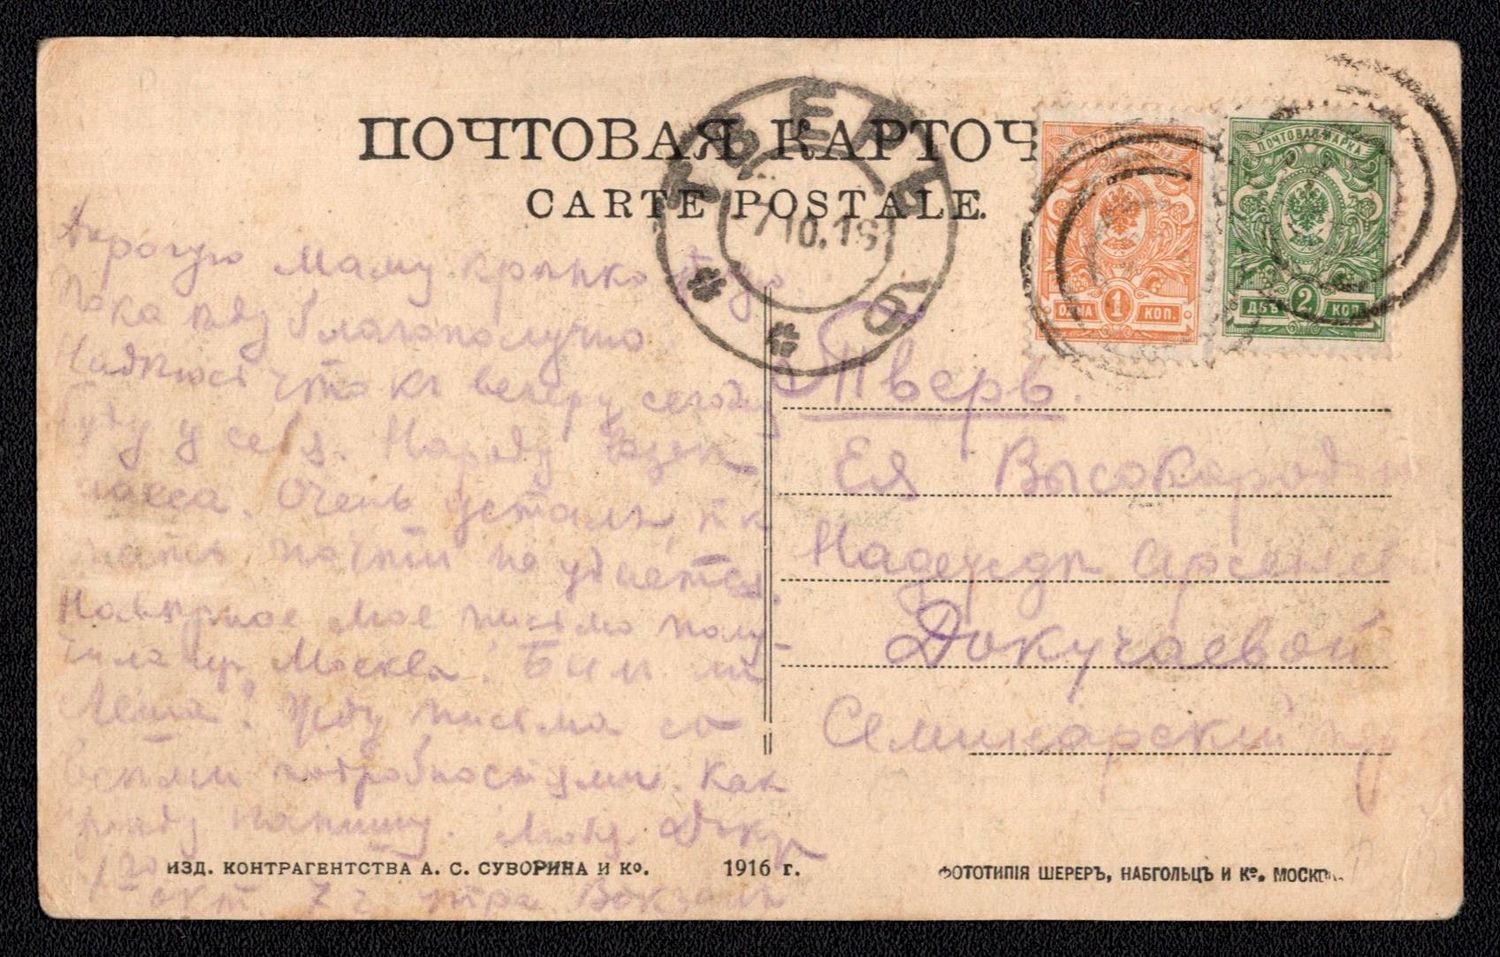 ПОЧТОВАЯ КАРТОЧ
CARTE POSTALE.
ТВЕРЬ
7 10.16
б
ПОЧТОВАЯ МАРКА
ОДНА 1 КОП.
ДВѢ 2 КОП.
Дорогую Маму крѣпко
Пока ѣду благополучно.
Надѣюсь что къ вечеру сегодня
буду у себя. Народу
масса. Очень усталъ, т. к.
спать почти не удается.
Навѣрное мое письмо полу-
чила изъ Москвы. Былъ ли
Леша? Жду письма со
всѣми подробностями. Как
приѣду напишу.
окт 7 ч утра Вокзалъ
Тверь.
Ея Высокород
Надеждѣ Арсеньев
Докучаевой
Семинарскій пер
ИЗД. КОНТРАГЕНТСТВА А. С. СУВОРИНА И Ко.
1916 г.
ФОТОТИПІЯ ШЕРЕРЪ, НАБГОЛЬЦЪ И Ко, МОСКВ